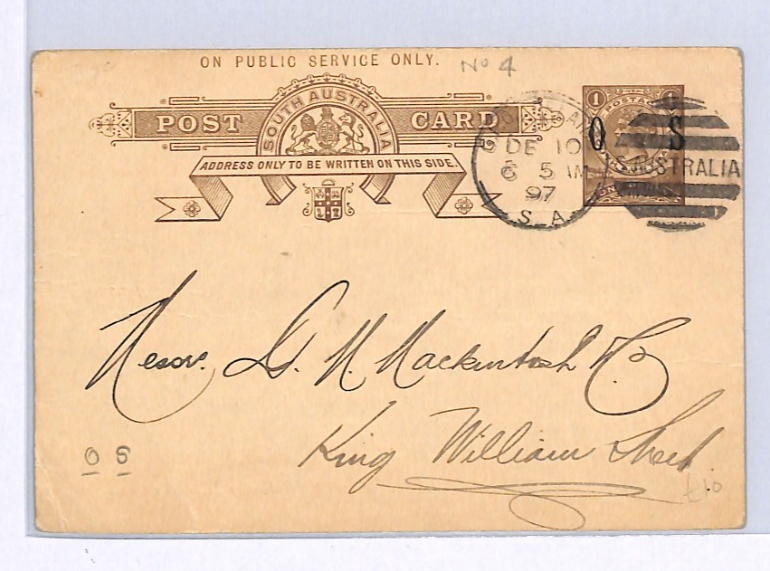 ON PUBLIC SERVICE ONLY.
No 4
SOUTH AUSTRALIA
POST CARD
ADDRESS ONLY TO BE WRITTEN ON THIS SIDE.
1 POSTAGE 1
O S
DE 10
5
97
S.A
S.AUSTRALIA
Messr. G. N. Mackintosh & Co
King William Street
O S
£10